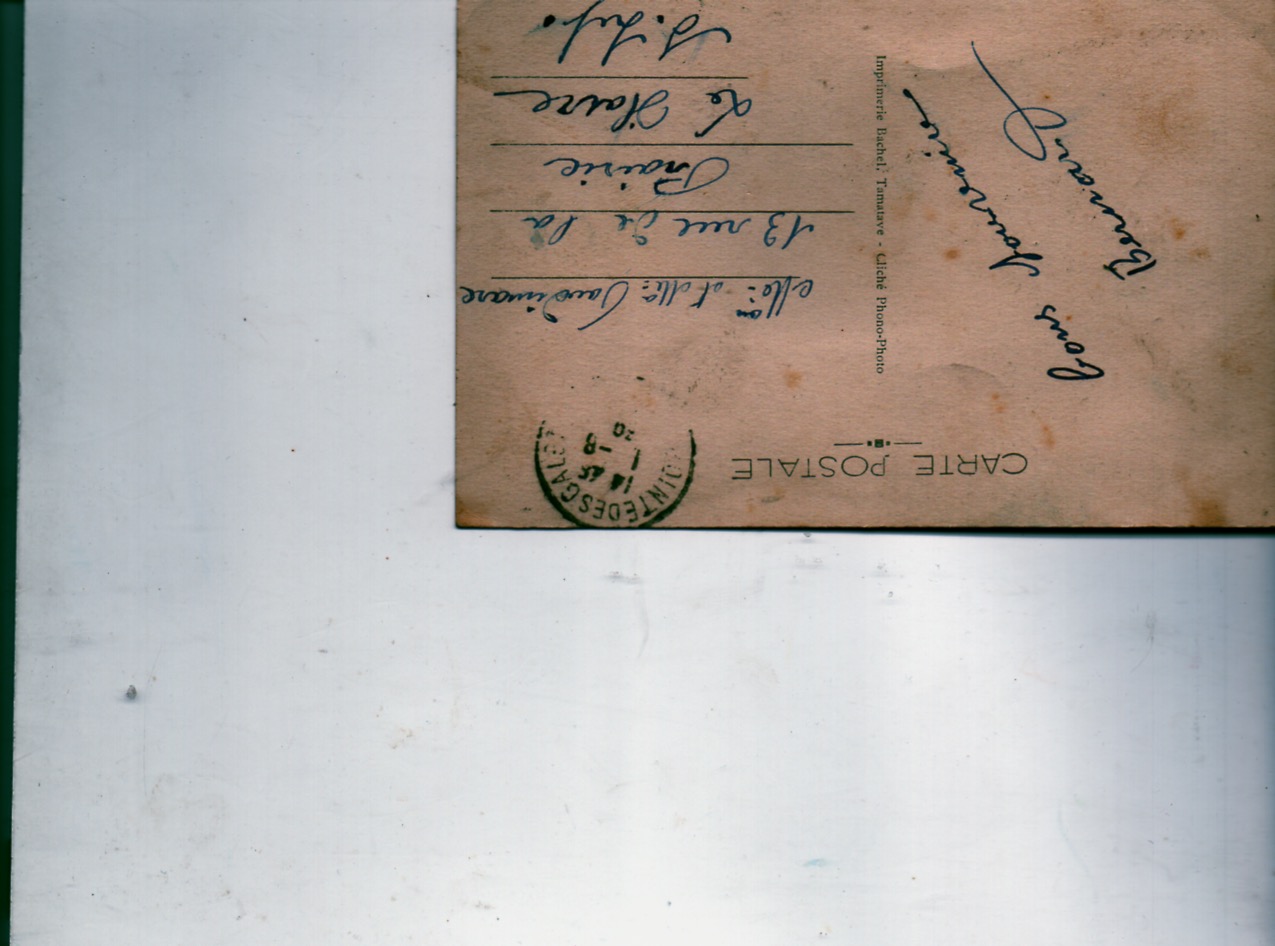 CARTE POSTALE
POINTE DES GALETS
14 45
1 - 8
20
bons souvenirs
Bernard
Imprimerie Bachel, Tamatave - Cliché Phono-Photo
et Mlle
13 rue de la
Prairie
Le Havre
S. Infre